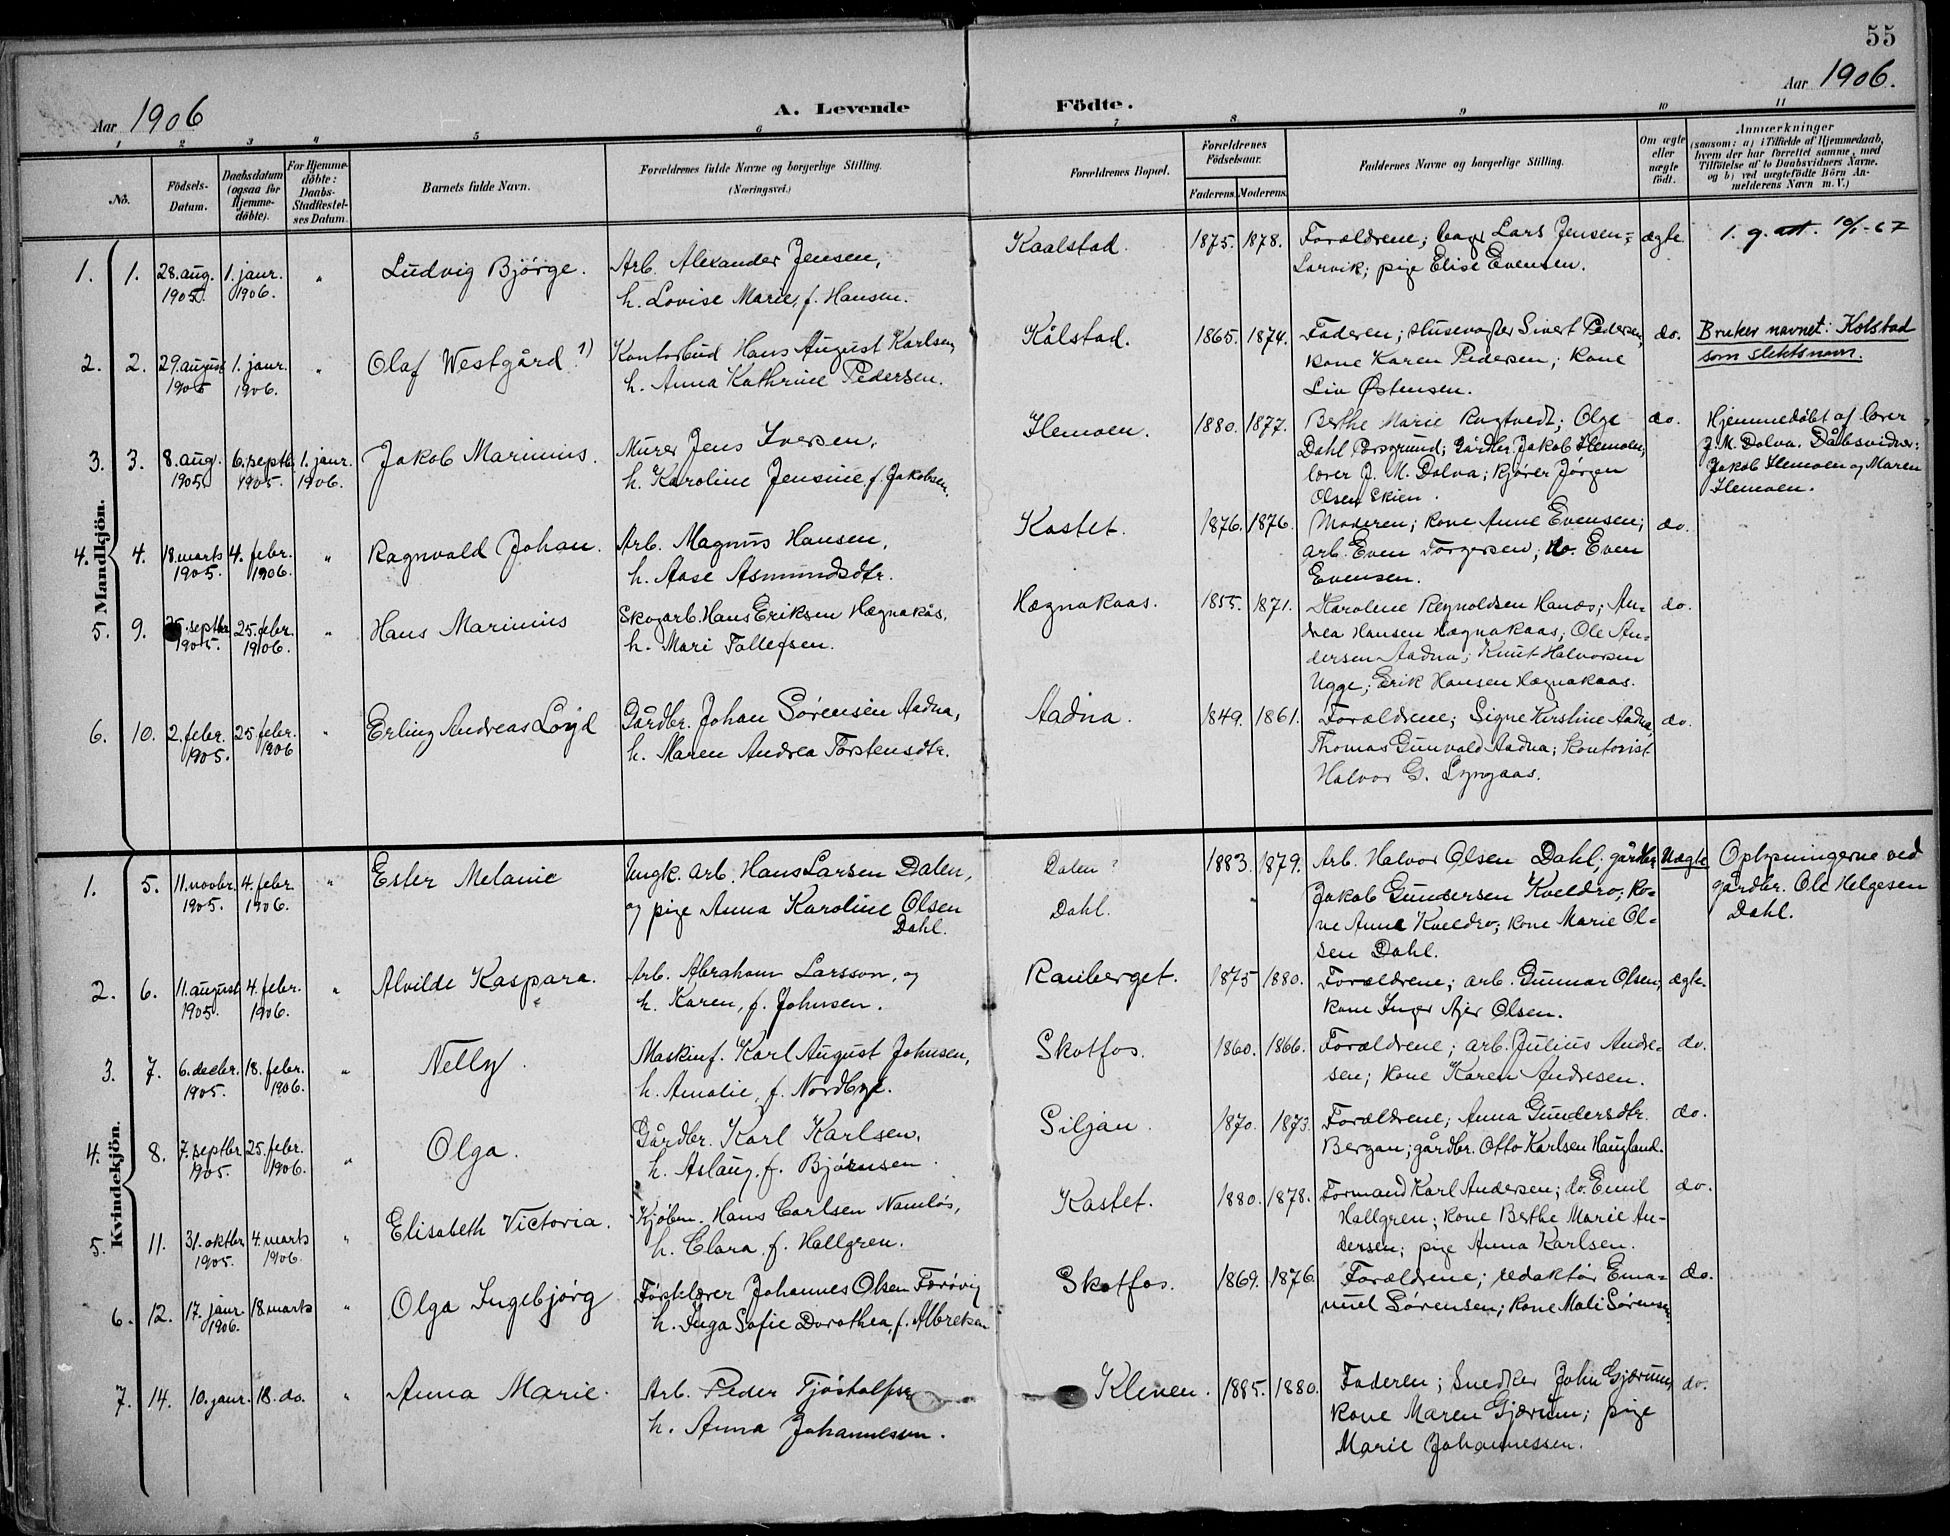 55
Aar 1906
A. Levende Födte.
Aar 1906.
1 2 3 4 5 6 7 8 9 10 11
No.
Födsels-Datum.
Daabsdatum (ogsaa for Hjemmedöbte).
For Hjemmedöbte: Daabs-Stadfæstelses Datum.
Barnets fulde Navn.
Forældrenes fulde Navne og borgerlige Stilling. (Næringsvei.)
Forældrenes Bopæl.
Forældrenes Födselsaar.
Faderens. Moderens.
Faddernes Navne og borgerlige Stilling.
Om ægte eller uægte födt.
Anmærkninger
(saasom: a) i Tilfælde af Hjemmedaab,
hvem der har forrettet samme, med
Tilföielse af to Daabsvidners Navne.
og b) ved uægtefödte Börn An-
melderens Navn m. V.)
Mandkjön.
1. 1. 28. aug. 1905. 1. janr. 1906. " Ludvig Bjørge.
Arb. Alexander Jensen,
h. Lovise Marie, f. Hansen.
Kaalstad. 1875. 1878.
Forældrene; bager Lars Jensen,
Larvik; pige Elise Evensen.
ægte. 1. g. att. 10/1-67
2. 2. 29. august 1905 1. janr. 1906. " Olaf Westgård 1)
Kontorbud Hans August Karlsen,
h. Anna Kathrine Pedersen.
Kålstad. 1865. 1874.
Faderen; Husevogter Sivert Pedersen,
kone Karen Pedersen; kone
Liv Østensen.
do. Bruker navnet: Kolstad
som slektsnavn.
3. 3. 8. aug. 1905 6. septb. 1905. 1. janr. 1906. Jakob Marinius.
Murer Jens Iversen,
h. Karoline Jensine, f. Jakobsen.
Hemoen. 1880. 1877.
Berthe Marie Rugtvedt; Olge
Dahl Porsgrund; Gårdbr. Jakob Hemoen,
lærer J. M. Dolva; kjører Jørgen
Olsen, Skien.
do. Hjemmedöbt af lærer
J. M. Dolva. Dåbsvidner:
Jakob Hemoen og Maren
Hemoen.
4. 4. 18. marts 1905. 4. febr. 1906. " Ragnvald Johan.
Arb. Magnus Hansen,
h. Aase Asmundsdtr.
Kastet. 1876. 1876.
Moderen; kone Anne Evensen;
arb. Even Torgersen; do. Even
Evensen.
do.
5. 9. 25. septbr. 1905. 25. febr. 1906. " Hans Marinius
Skogarb. Hans Eriksen Hægnakås,
h. Mari Tollefsen.
Hægnakaas. 1855. 1871.
Karoline Reynoldsen Hanås; An-
drea Hansen Hægnakaas; Ole An-
dersen Aadna; Knut Halvorsen
Ugge; Erik Hansen Hægnakaas.
do.
6. 10. 2. febr. 1905. 25. febr. 1906 " Erling Andreas Loyd
Gårdbr. Johan Sørensen Aadna,
h. Maren Andrea Torstensdtr.
Aadna. 1849. 1861.
Forældrene; Signe Kirstine Aadna,
Thomas Gunvald Aadna; kontorist
Halvor G. Lyngaas.
do.
Kvindekjön.
1. 5. 11. novbr. 1905. 4. febr. 1906. " Ester Melanie
Ungk. arb. Hans Larsen Dalen,
og pige Anna Karoline Olsen
Dahl.
Dalen?
Dahl.
1883. 1879.
"
Arb. Halvor Olsen Dahl; gårdbr.
Jakob Gundersen Kveldro; ko-
ne Anne Kveldro; kone Marie Ol-
sen Dahl.
Uægte Oplysningerne ved
gårdbr. Ole Helgesen
Dahl.
2. 6. 11. august 1905. 4. febr. 1906. " Alvilde Kaspara.
Arb. Abraham Larsson, og
h. Karen, f. Johnsen.
Rauberget. 1875 1880.
Forældrene; arb. Gunnar Olsen;
kone Inger Ajer Olsen.
ægte.
3. 7. 6. decbr. 1905. 18. febr. 1906. " Nelly.
Maskinf. Karl August Johnsen,
h. Amalie, f. Nordbye.
Skotfos. 1860. 1866.
Forældrene; arb. Julius Andre-
sen; kone Karen Andresen.
do.
4. 8. 7. septbr. 1905. 25. febr. 1906. " Olga.
Gårdbr. Karl Karlsen,
h. Aslaug, f. Bjørnsen.
Siljan. 1870. 1873.
Forældrene; Anna Gundersdtr.
Bergan; gårdbr. Otto Karlsen Haugland.
do.
5. 11. 31. oktbr. 1905. 4. marts 1906. " Elisabeth Victoria.
Kjøbm. Hans Carlsen Namløs,
h. Clara, f. Hallgren.
Kastet. 1880. 1878.
Formand Karl Andersen; do. Emil
Hallgren; kone Berthe Marie An-
dersen; pige Anna Karlsen.
do.
6. 12. 17. janr. 1906. 18. marts " Olga Ingebjørg
Førstelærer Johannes Olsen Førøvig
h. Inga Sofie Dorothea, f. Albretsen
Skotfos. 1869. 1876.
Forældrene; redaktør Ema-
nuel Sørensen; kone Mali Sørensen.
do.
7. 14. 10. janr. 18. do. " Anna Marie.
Arb. Peder Tjöstolfsen
h. Anna Johannessen.
Kleven. 1885. 1880.
Faderen; Snedker John Gjærum,
kone Maren Gjærum; pige
Marie Johannessen.
do.